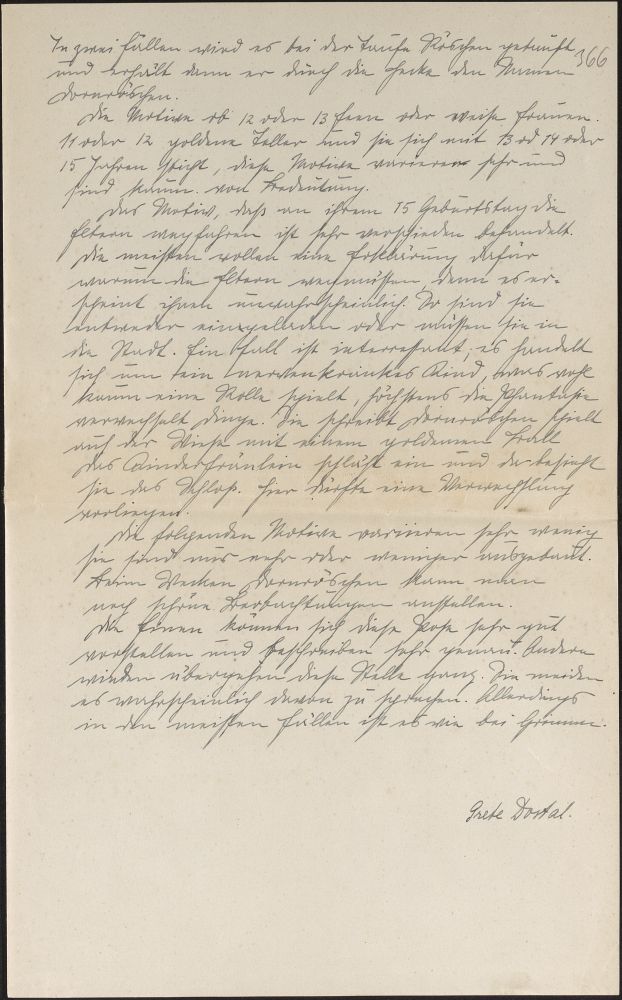 In zwei Fällen wird es bei der Taufe Röschen getauft 366
und erhält dann er durch die Hecke den Namen
Dornröschen.
Die Motive ob 12 oder 13 Feen oder weise Frauen.
11 oder 12 goldene Teller und sie sich mit 13 od 14 oder
15 Jahren sticht, diese Motive varieren sehr und
sind kaum von Bedeutung.
Das Motiv, daß an ihrem 15 Geburtstag die
Eltern wegfahren ist sehr verschieden behandelt.
Die meisten wollen eine Erklärung dafür
warum die Eltern wegmüssen, denn es er-
scheint ihnen unwahrscheinlich. Da sind sie
entweder eingeladen oder müssen sie in
die Stadt. Ein Fall ist interessant; es handelt
sich um ein nervenkrankes Kind, was wohl
kaum eine Rolle spielt, höchstens die Phantasie
verwechselt Dinge. Sie schreibt Dornröschen spielt
auf der Wiese mit einem goldenen Ball
das Kinderfräulein schläft ein und da besieht
sie das Schloß. Hier dürfte eine Verwechslung
vorliegen.
Die folgenden Motive variieren sehr wenig
sie sind nur mehr oder weniger ausgebaut.
Beim Wecken Dornröschen kann man
noch schöne Beobachtungen anstellen.
Die Einen können sich diese Pose sehr gut
vorstellen und beschreiben sehr genau. Andere
wieder übergehen diese Stelle ganz. Sie meiden
es wahrscheinlich davon zu sprechen. Allerdings
in den meisten Fällen ist es wie bei Grimm.
Grete Dostal.